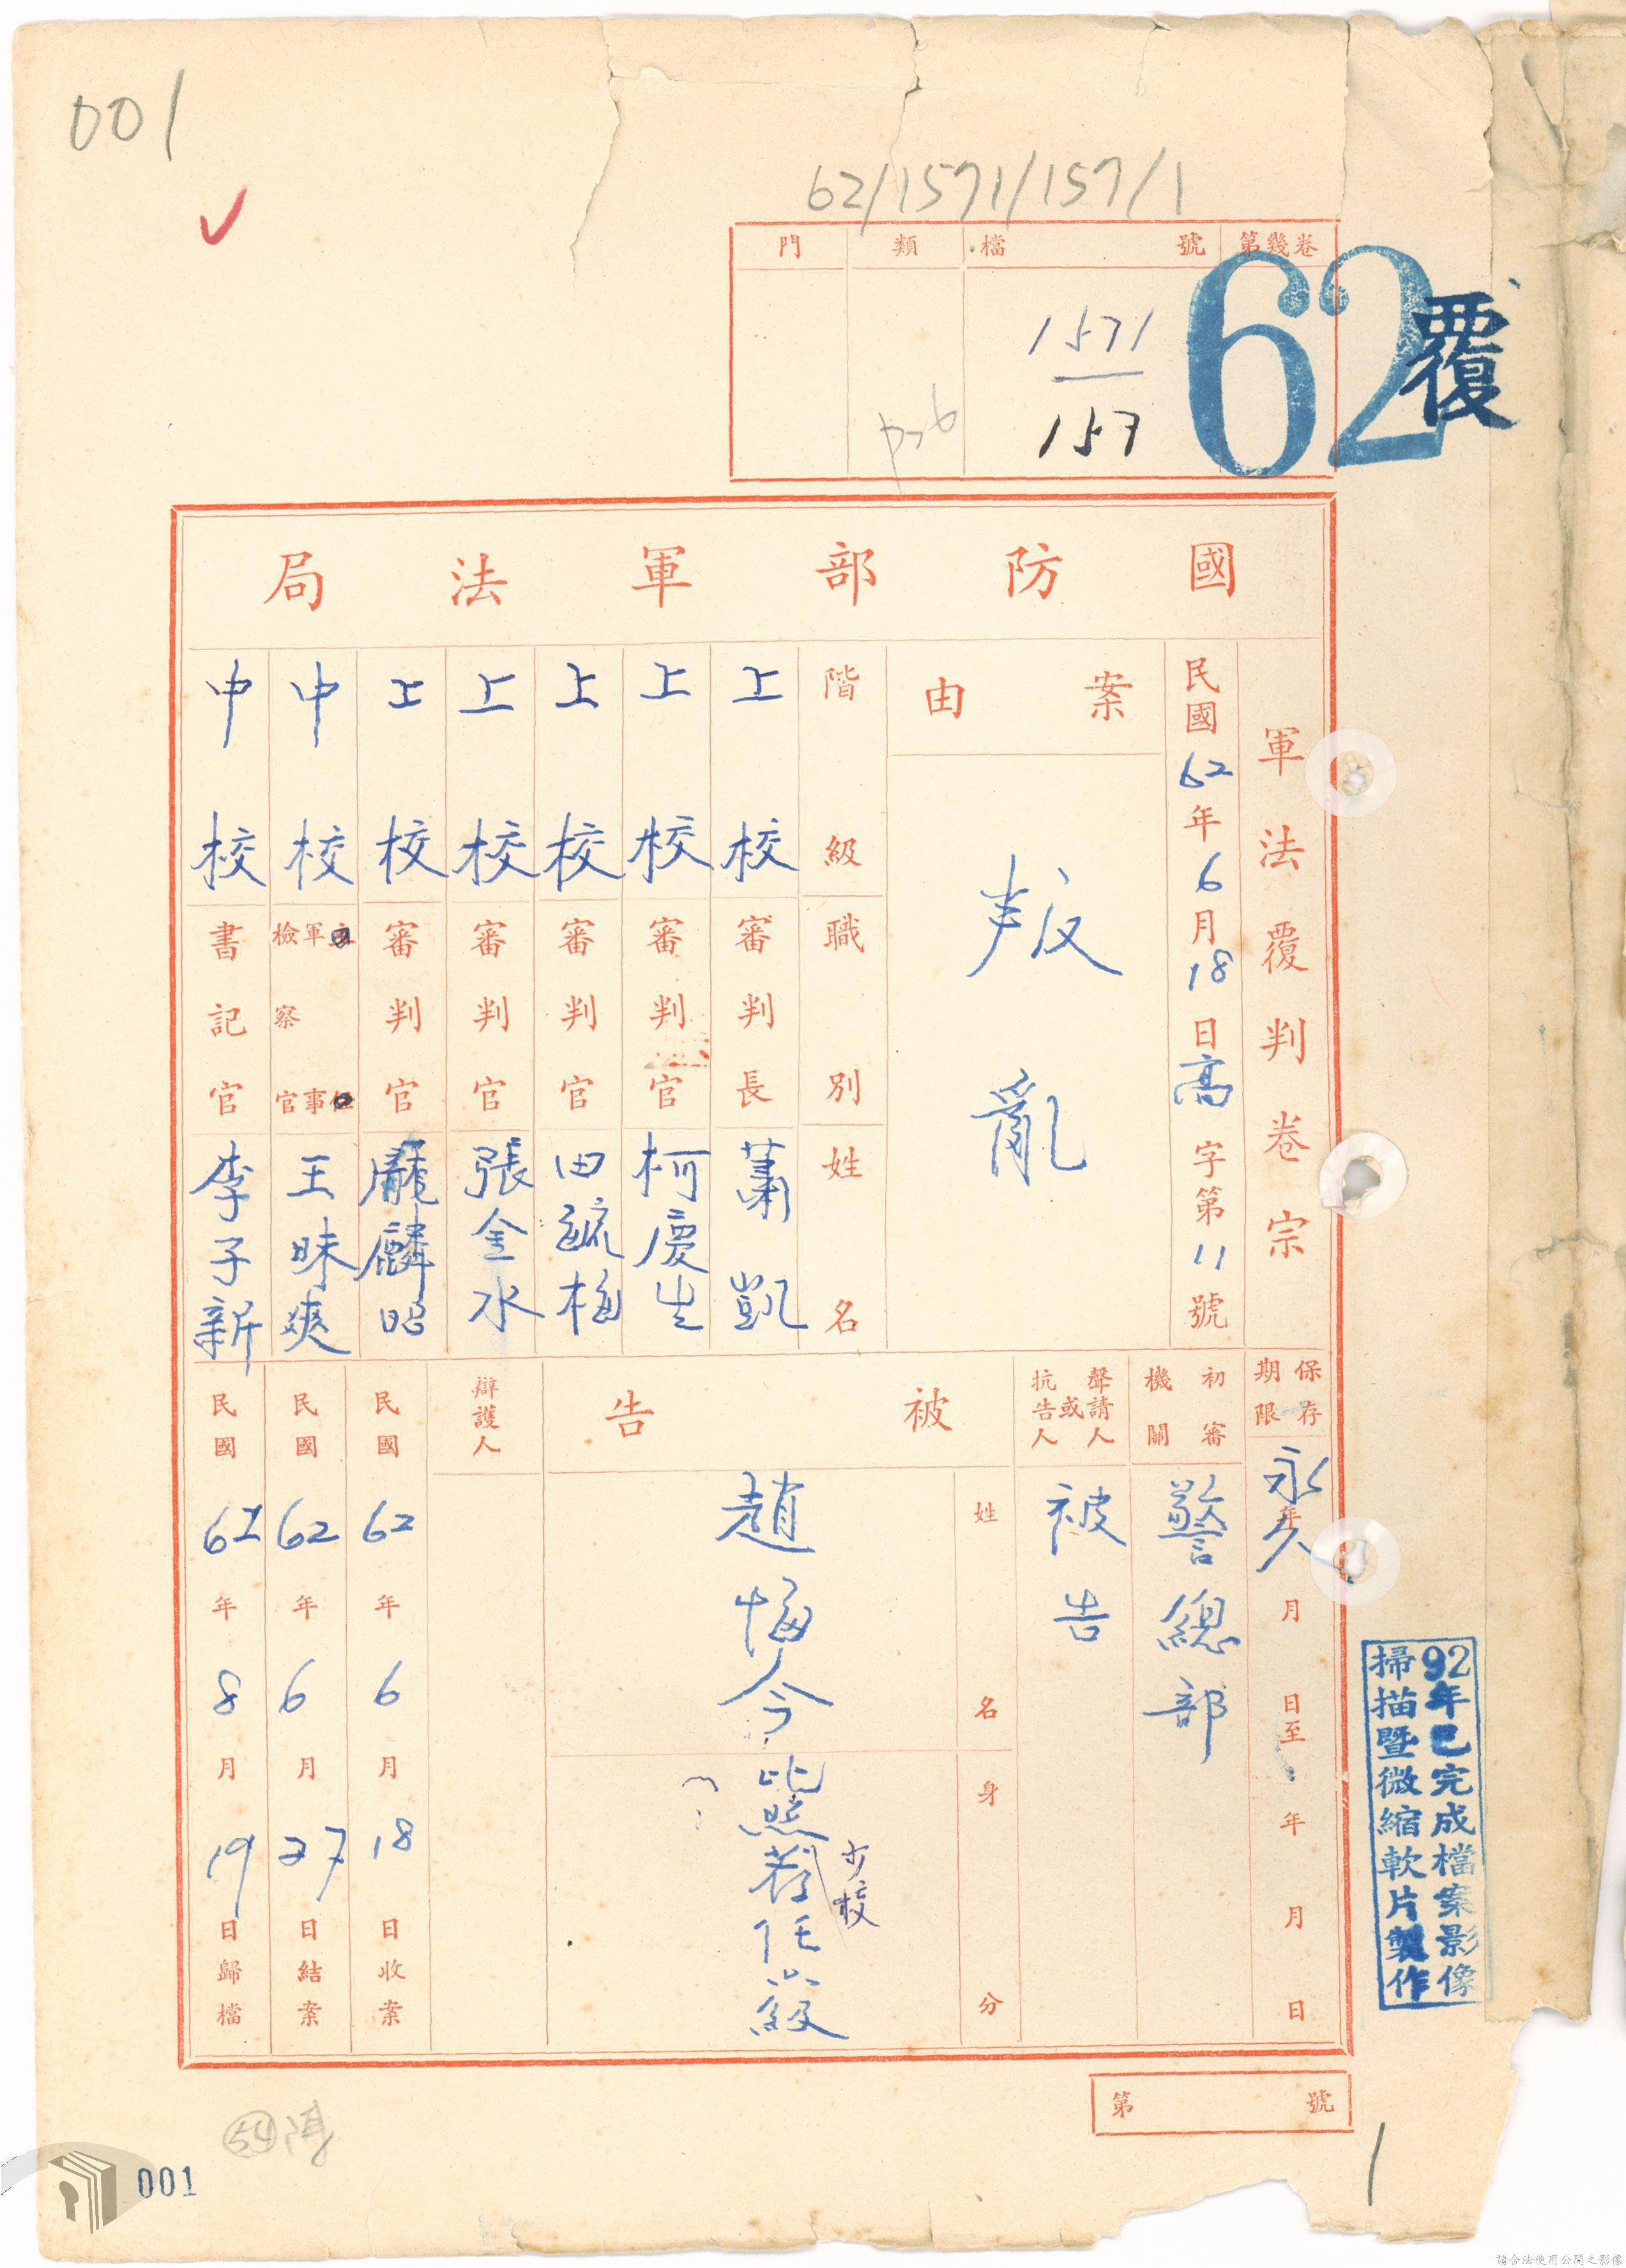 001
62/1571/157/1
第幾卷
檔號
類
門
1571
157
62
覆
國防部軍法局
軍法覆判卷宗
民國62年6月18日高字第11號
案由
叛亂
階級 職別 姓名
上校 審判長 蕭凱
上校 審判官 柯慶生
上校 審判官 田毓梅
上校 審判官 張金水
上校 審判官 麟昭
中校 軍事檢察官 王昧爽
中校 書記官 李子新
保存期限
永久
年月日至年月日
初審機關
警總部
聲請人或抗告人
被告
被告
姓名
趙悔今
身分
比照薦任八級
少校
辯護人
民國62年6月18日收案
民國62年6月27日結案
民國62年8月19日歸檔
92年已完成檔案影像
掃描暨微縮軟片製作
第號
1
54
001
請合法使用公開之影像